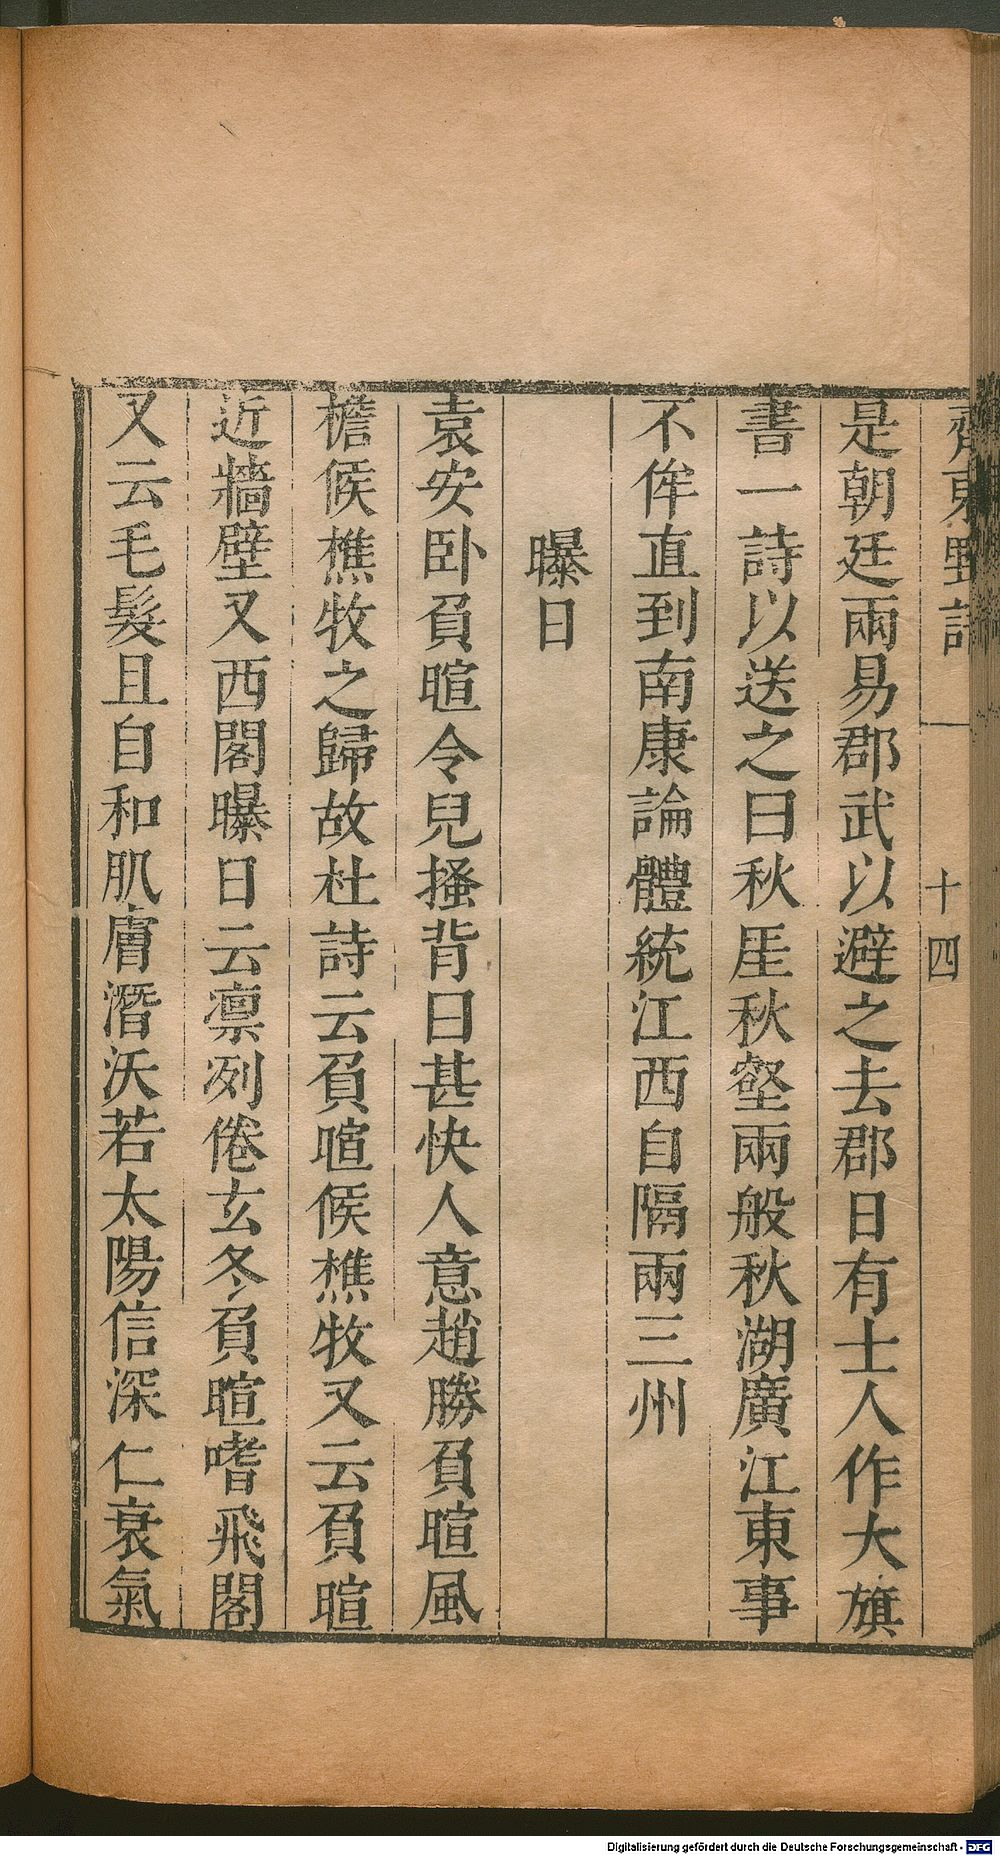 齊東野語
十四
是朝廷兩易郡武以避之去郡日有士人作大旗
書一詩以送之曰秋厓秋壑兩般秋湖廣江東事
不侔直到南康論體統江西自隔兩三州
曝日
袁安卧負暄令兒搔背曰甚快人意趙勝負暄風
檐候樵牧之歸故杜詩云負暄候樵牧又云負暄
近牆壁又西閣曝日云凛冽倦玄冬負暄嗜飛閣
又云毛髮且自和肌膚潛沃若太陽信深仁衰氣
Digitalisierung gefördert durch die Deutsche Forschungsgemeinschaft - DFG